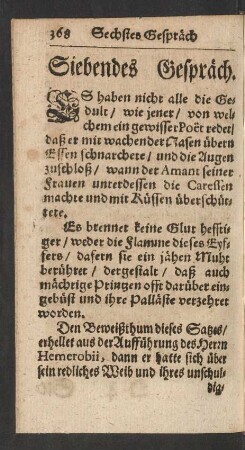 368 Sechstes Gespräch
Siebendes Gespräch.
ES haben nicht alle die Ge-
dult / wie jener / von wel-
chem ein gewisser Poët redet/
daß er mit wachender Nasen übern
Essen schnarchete / und die Augen
zuschloß / wann der Amant seiner
Frauen unterdessen die Caressen
machte und mit Küssen überschüt-
tete.
Es brennet keine Glut hefftiger
/ weder die Flamme dieses Eyf-
fers / dafern sie ein jähen Muht
berühret / dergestalt / daß auch
mächtige Printzen offt darüber ein-
gebüst und ihre Palläste verzehret
worden.
Den Beweißthum dieses Satzes/
erhellet aus der Aufführung des Herrn
Hemerobii, dann er hatte sich über
sein redliches Weib und ihres unschul-
dig-